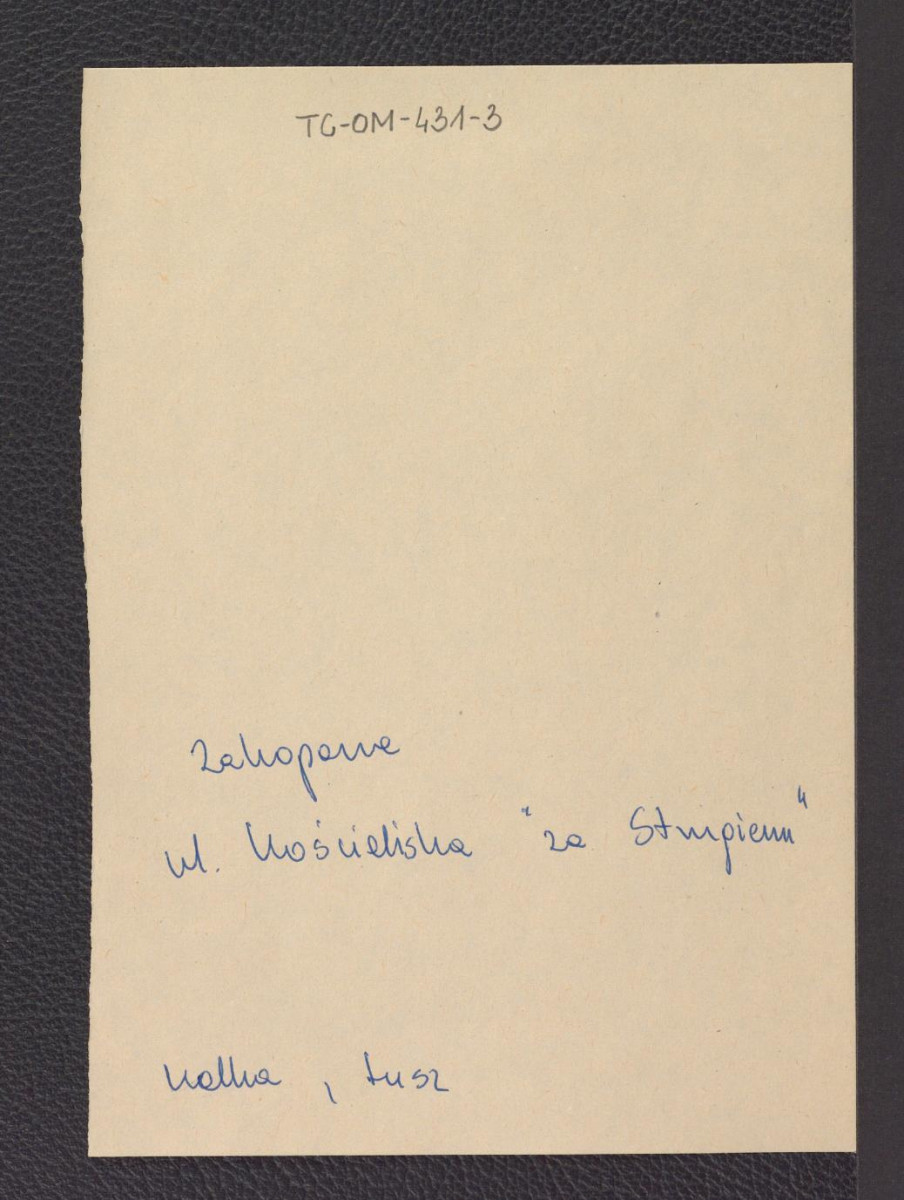 TG-OM-431-3
Zakopane
ul. Kościeliska "za Strugiem"
kalka , tusz